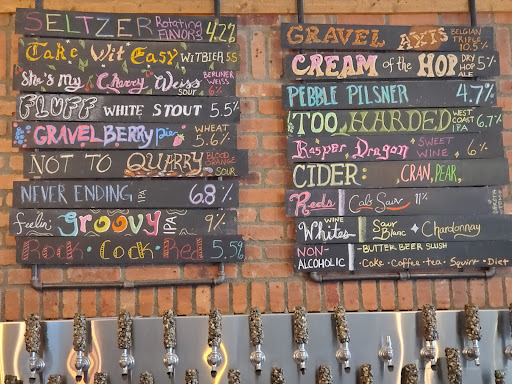 SELTZER Rotating FLAVORS 4.2%
Take Wit Easy WITBIER 5.5
She's My Cherry Weiss BERLINER WEISS SOUR 6%
FLUFF WHITE STOUT 5.5%
GRAVELBERRY pie WHEAT 5.6%
NOT TO QUARRY BLOOD ORANGE SOUR
NEVER ENDING IPA 6.8%
feelin' groovy IPA 9%
Rock • Cock • Red 5.5%
GRAVEL AXIS BELGIAN TRIPLE 10.5%
CREAM of the HOP DRY HOP ALE 5%
PEBBLE PILSNER 4.7%
TOO HARDED WEST COAST IPA 6.7%
Rasper Dragon SWEET WINE 6%
CIDER: CRAN, PEAR,
Reds Cab Sauv 11%
WINE
Whites Sauv Blanc • Chardonnay
NON-ALCOHOLIC - BUTTER BEER SLUSH
• Coke • Coffee • tea • Squirt • Diet